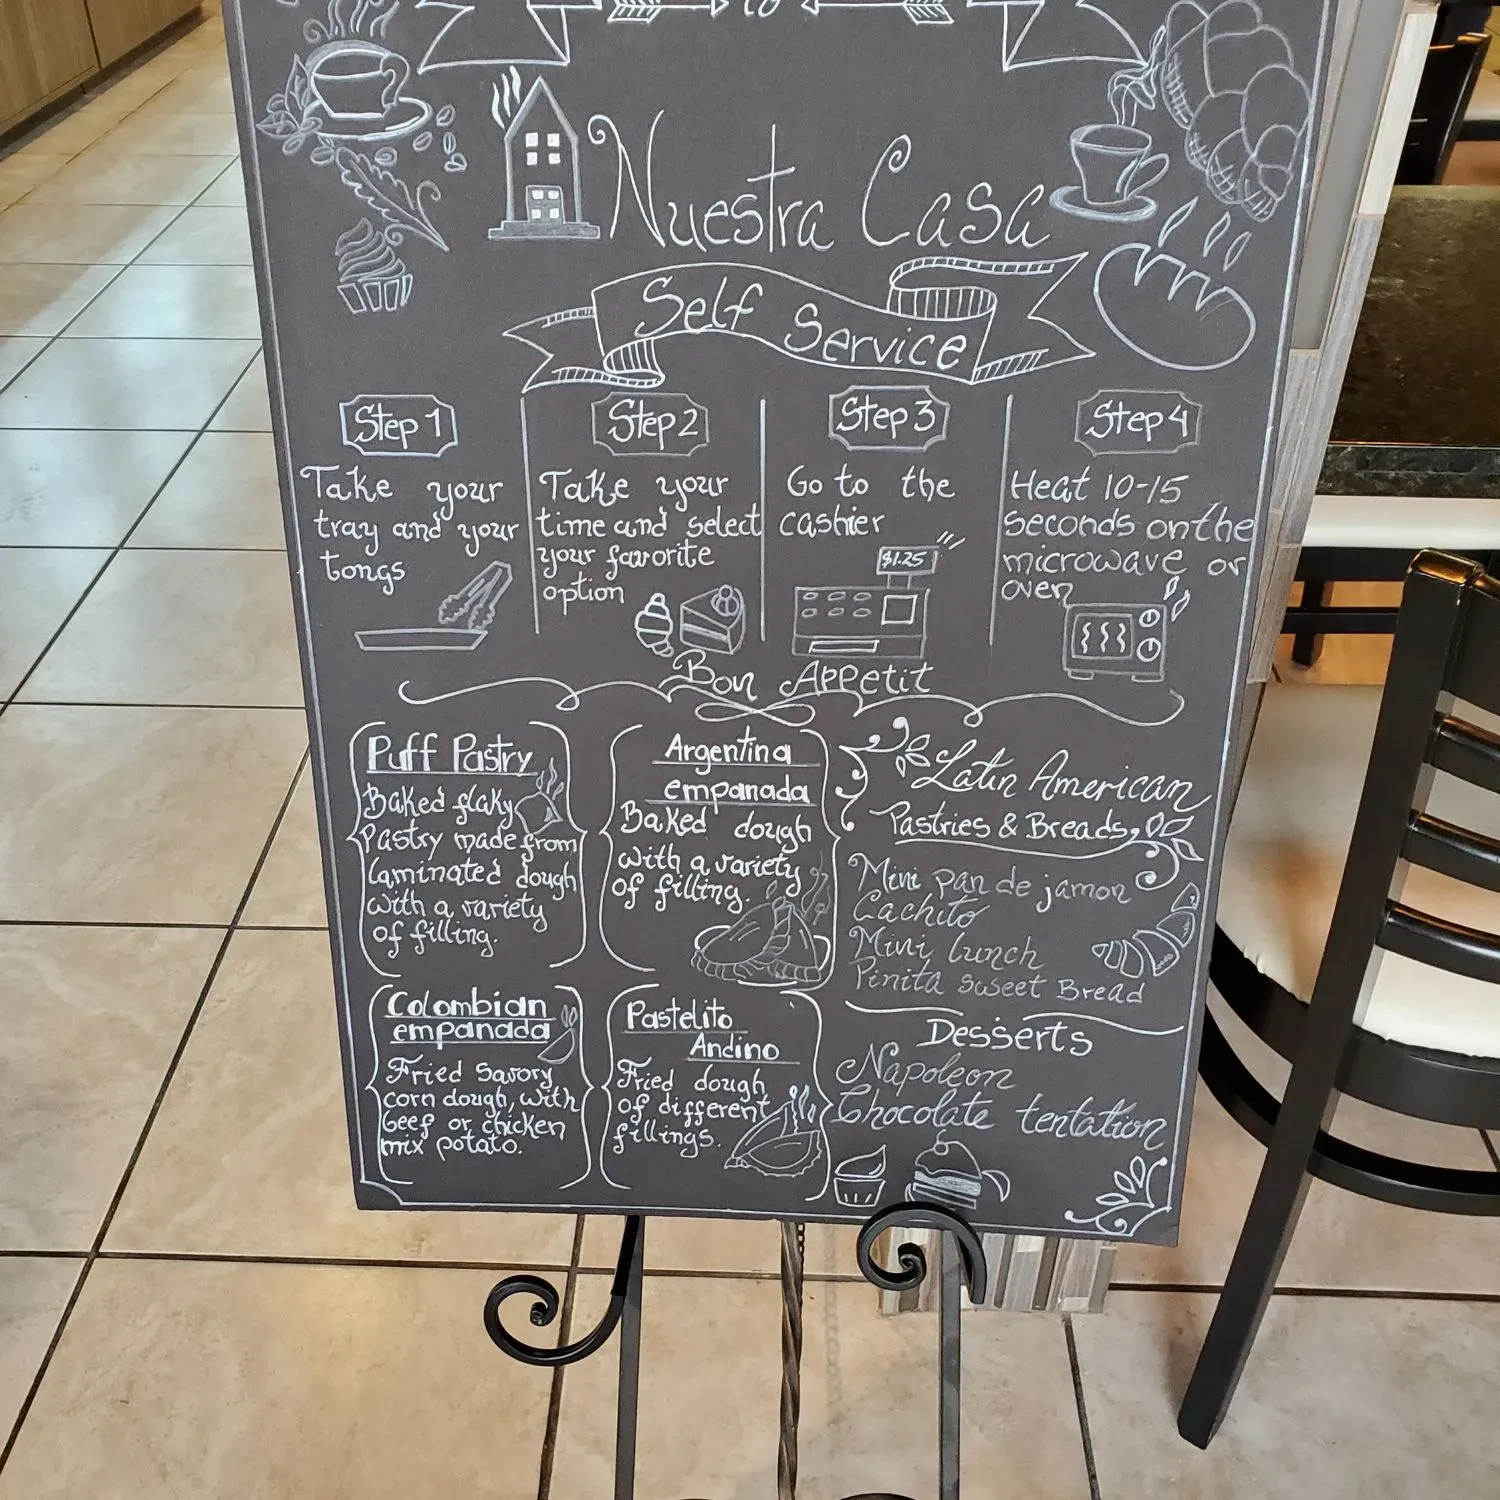 to
Nuestra Casa
Self Service
Step 1
Take your
tray and your
tongs
Step 2
Take your
time and select
your favorite
option
Step 3
Go to the
cashier
$1.25
Step 4
Heat 10-15
seconds on the
microwave or
oven
Bon Appetit
Puff Pastry
Baked flaky
Pastry made from
Laminated dough
with a variety
of filling.
Argentina
empanada
Baked dough
with a variety
of filling.
Colombian
empanada
Fried Savory
corn dough, with
beef or chicken
mix potato.
Pastelito
Andino
Fried dough
of different
fillings.
Latin American
Pastries & Breads
Mini pan de jamon
Cachito
Mini lunch
Pinita sweet Bread
Desserts
Napoleon
Chocolate tentation